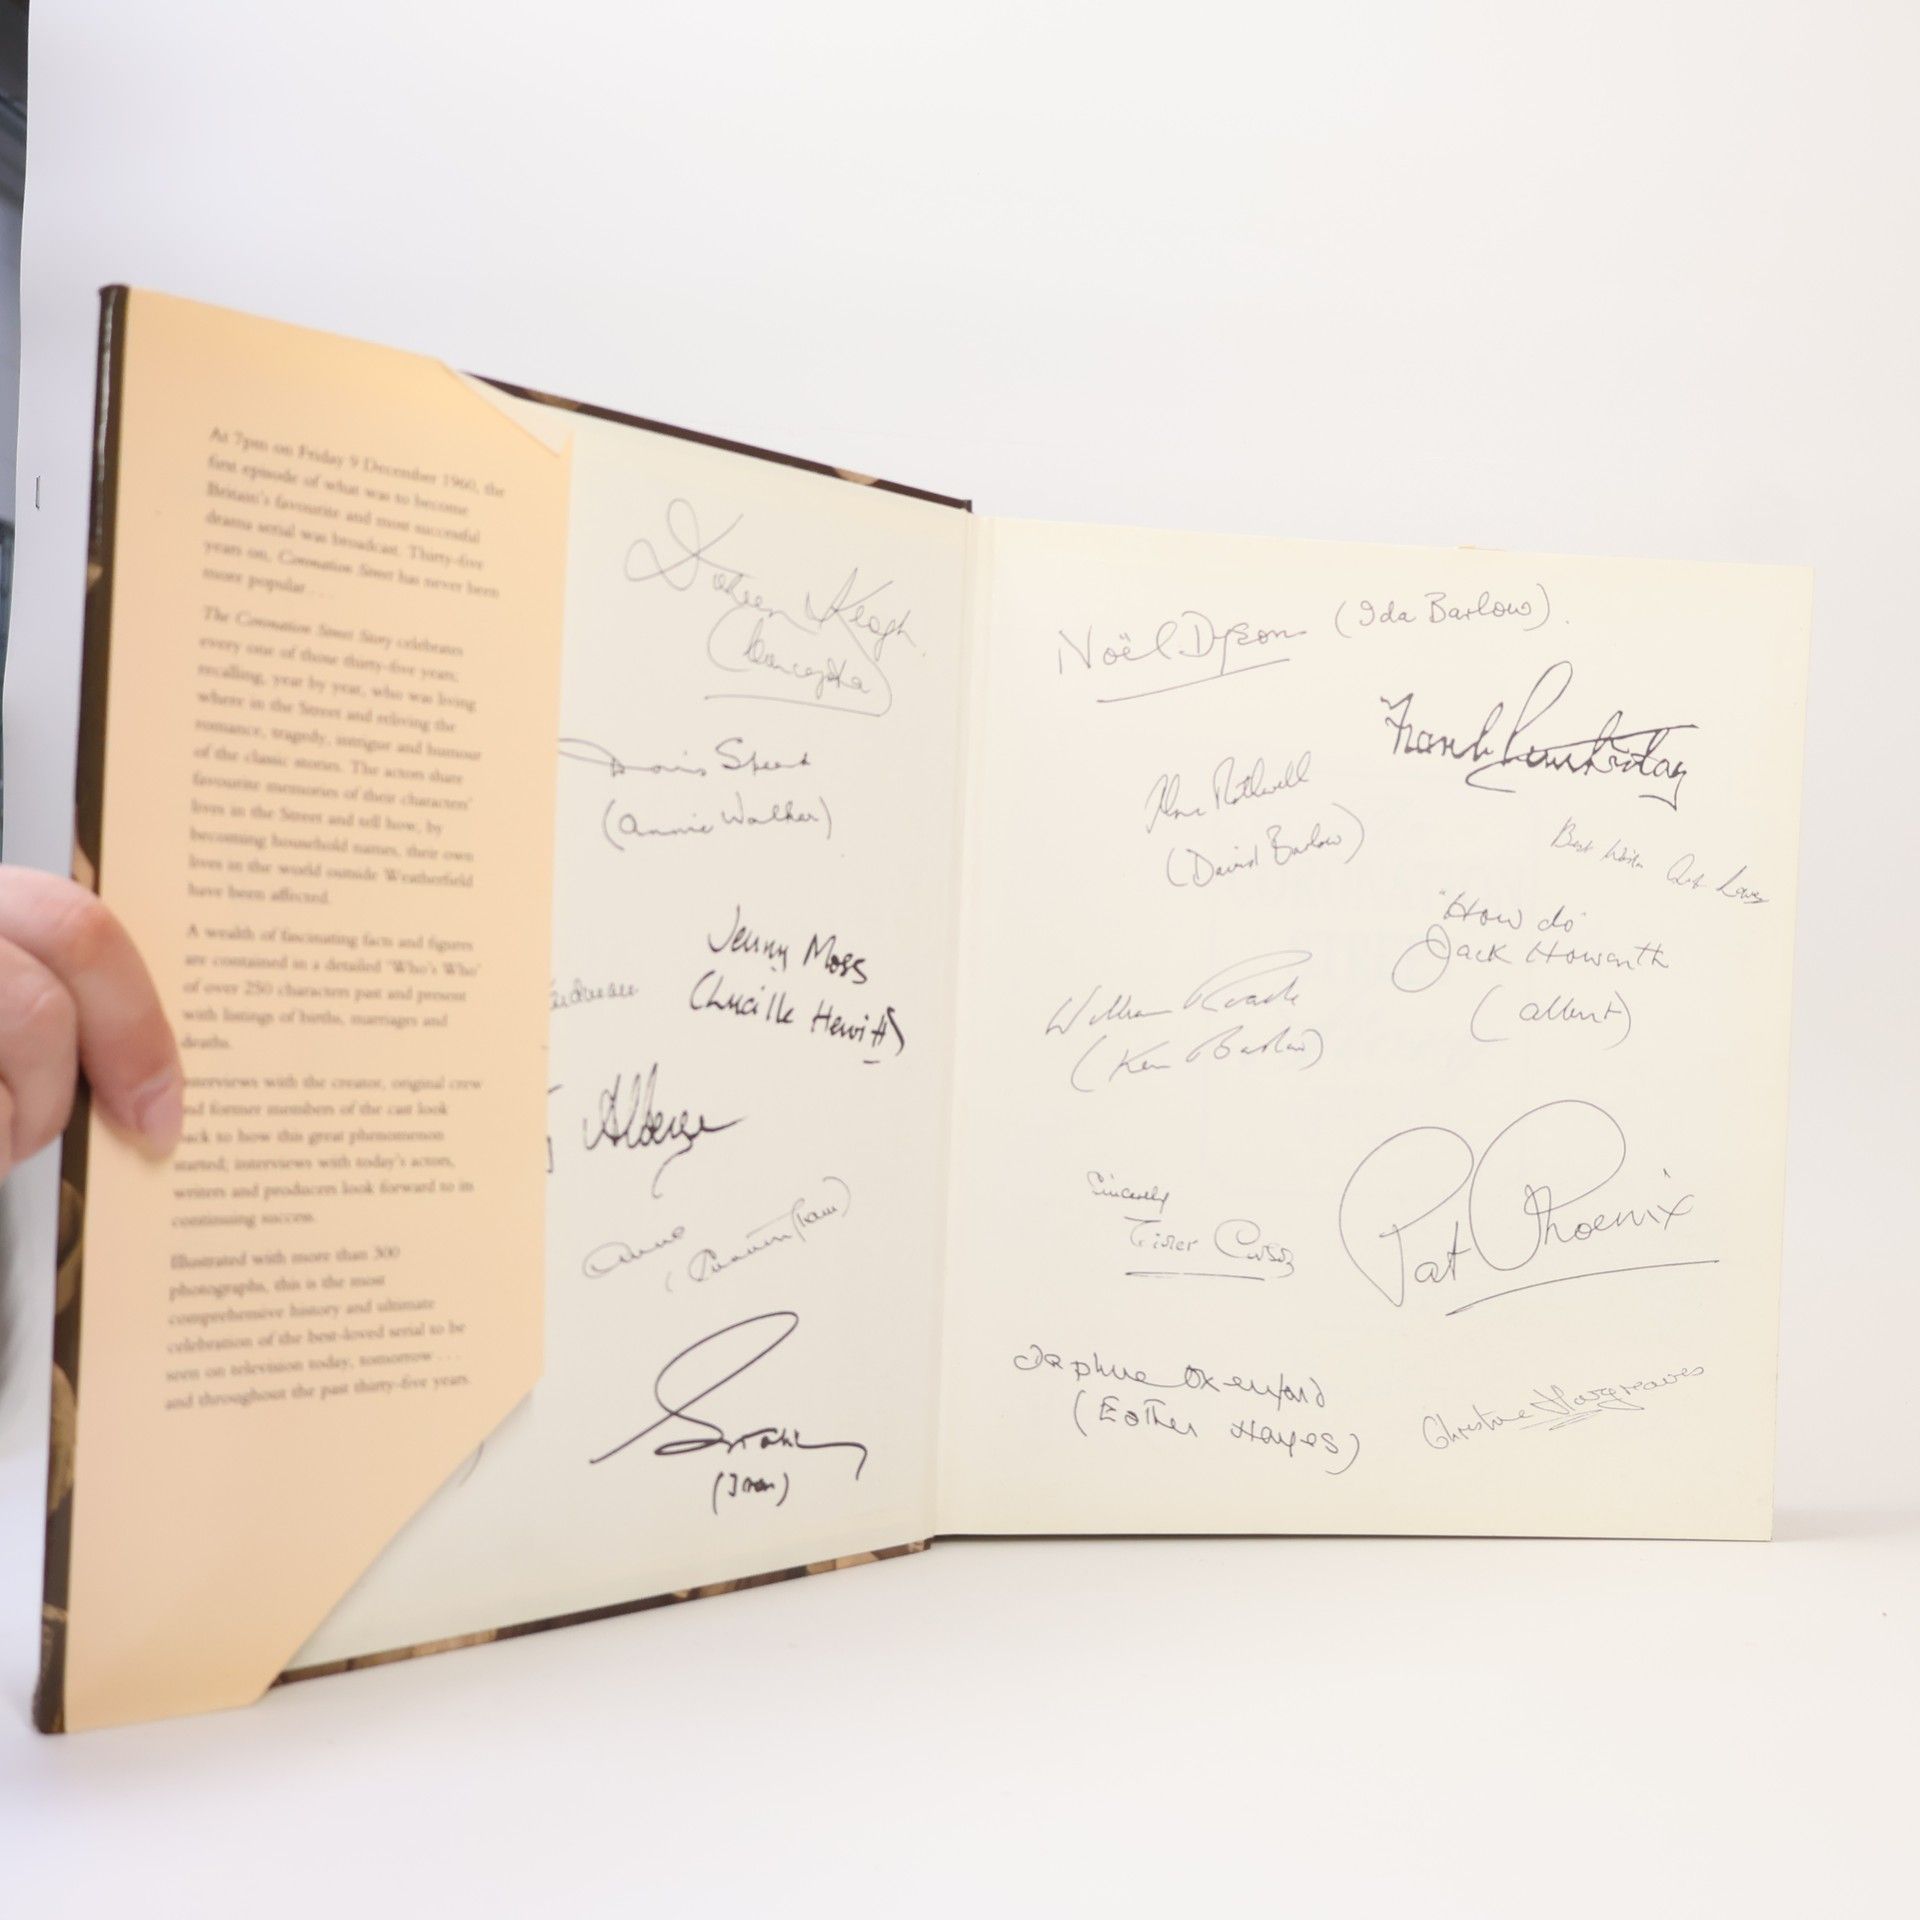 At 7pm on Friday 9 December 1960, the
first episode of what was to become
Britain's favourite and most successful
drama serial was broadcast. Thirty-five
years on, Coronation Street has never been
more popular . . .
The Coronation Street Story celebrates
every one of those thirty-five years,
recalling, year by year, who was living
where in the Street and reliving the
romance, tragedy, intrigue and humour
of the classic stories. The actors share
favourite memories of their characters'
lives in the Street and tell how, by
becoming household names, their own
lives in the world outside Weatherfield
have been affected.
A wealth of fascinating facts and figures
are contained in a detailed 'Who's Who'
of over 250 characters past and present
with listings of births, marriages and
deaths.
Interviews with the creator, original crew
and former members of the cast look
back to how this great phenomenon
started; interviews with today's actors,
writers and producers look forward to its
continuing success.
Illustrated with more than 300
photographs, this is the most
comprehensive history and ultimate
celebration of the best-loved serial to be
seen on television today, tomorrow . . .
and throughout the past thirty-five years.
Doreen Keogh
Doris Speed
(Annie Walker)
Jenny Moss
(Lucille Hewitt)
Alberge
Anne
(Ivan)
Noël Dyson (Ida Barlow).
Frank
Alan Rothwell
(David Barlow)
Best Wishes
"How do"
Jack Howarth
(Albert)
William Roache
(Ken Barlow)
Sincerely
Pat Phoenix
Daphne Oxenford
(Esther Hayes)
Christine Hargreaves